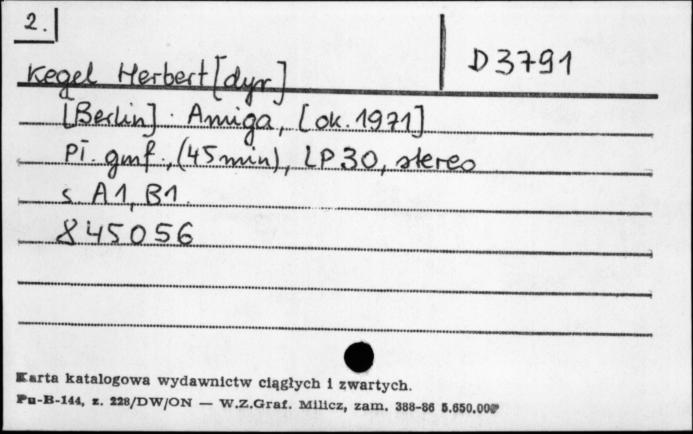 2.
D 3791
Kegel Herbert [dyr]
[Berlin] : Amiga, [ok. 1971]
Pł. gmf., (45 min), LP 30, stereo
s. A1, B1.
845056
Karta katalogowa wydawnictw ciągłych i zwartych.
Pu-B-144, z. 228/DW/ON — W.Z.Graf. Milicz, zam. 388-86 5.650.000